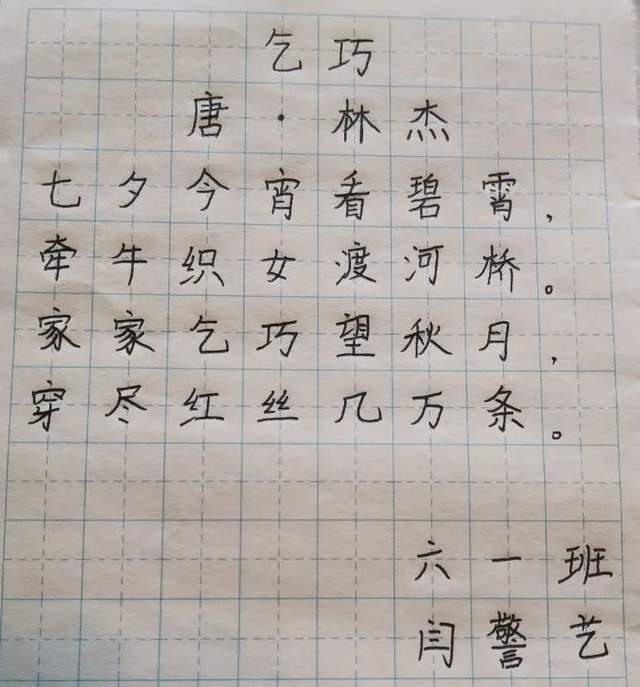 乞巧
唐·林杰
七夕今宵看碧霄，
牵牛织女渡河桥。
家家乞巧望秋月，
穿尽红丝几万条。
六一班
闫警艺